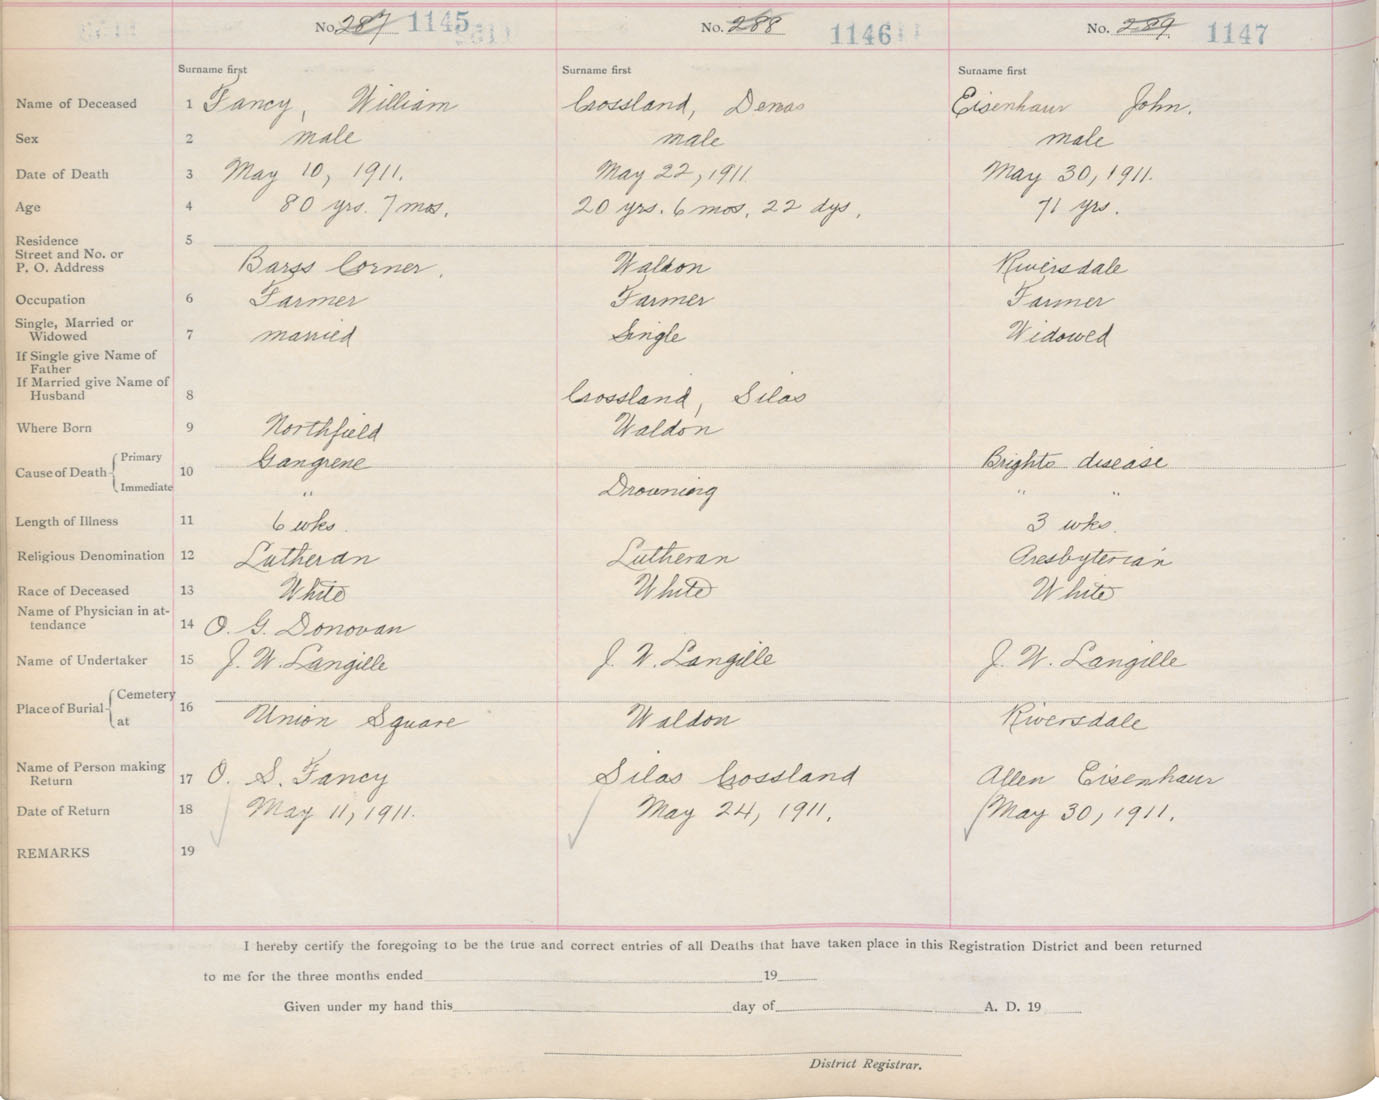 No. 287 1145 No. 288 1146 No. 289 1147
Surname first Surname first Surname first
Name of Deceased 1 Fancy, William Crossland, Demas Eisenhaur John.
Sex 2 male male male
Date of Death 3 May 10, 1911. May 22, 1911 May 30, 1911.
Age 4 80 yrs. 7 mos. 20 yrs. 6 mos. 22 dys. 71 yrs.
Residence 5
Street and No. or
P. O. Address Barss Corner. Waldon Riversdale
Occupation 6 Farmer Farmer Farmer
Single, Married or
Widowed 7 married Single Widowed
If Single give Name of
Father
If Married give Name of
Husband 8 Crossland, Silas
Where Born 9 Northfield Waldon
Cause of Death Primary 10 Gangrene Brights disease
Immediate " Drowning " "
Length of Illness 11 6 wks. 3 wks.
Religious Denomination 12 Lutheran Lutheran Presbyterian
Race of Deceased 13 White White White
Name of Physician in at-
tendance 14 O. G. Donovan
Name of Undertaker 15 J. W. Langille J. W. Langille J. W. Langille
Place of Burial Cemetery 16
at Union Square Waldon Riversdale
Name of Person making
Return 17 O. S. Fancy Silas Crossland Allen Eisenhaur
Date of Return 18 May 11, 1911. May 24, 1911. May 30, 1911.
REMARKS 19
I hereby certify the foregoing to be the true and correct entries of all Deaths that have taken place in this Registration District and been returned
to me for the three months ended 19
Given under my hand this day of A. D. 19
District Registrar.